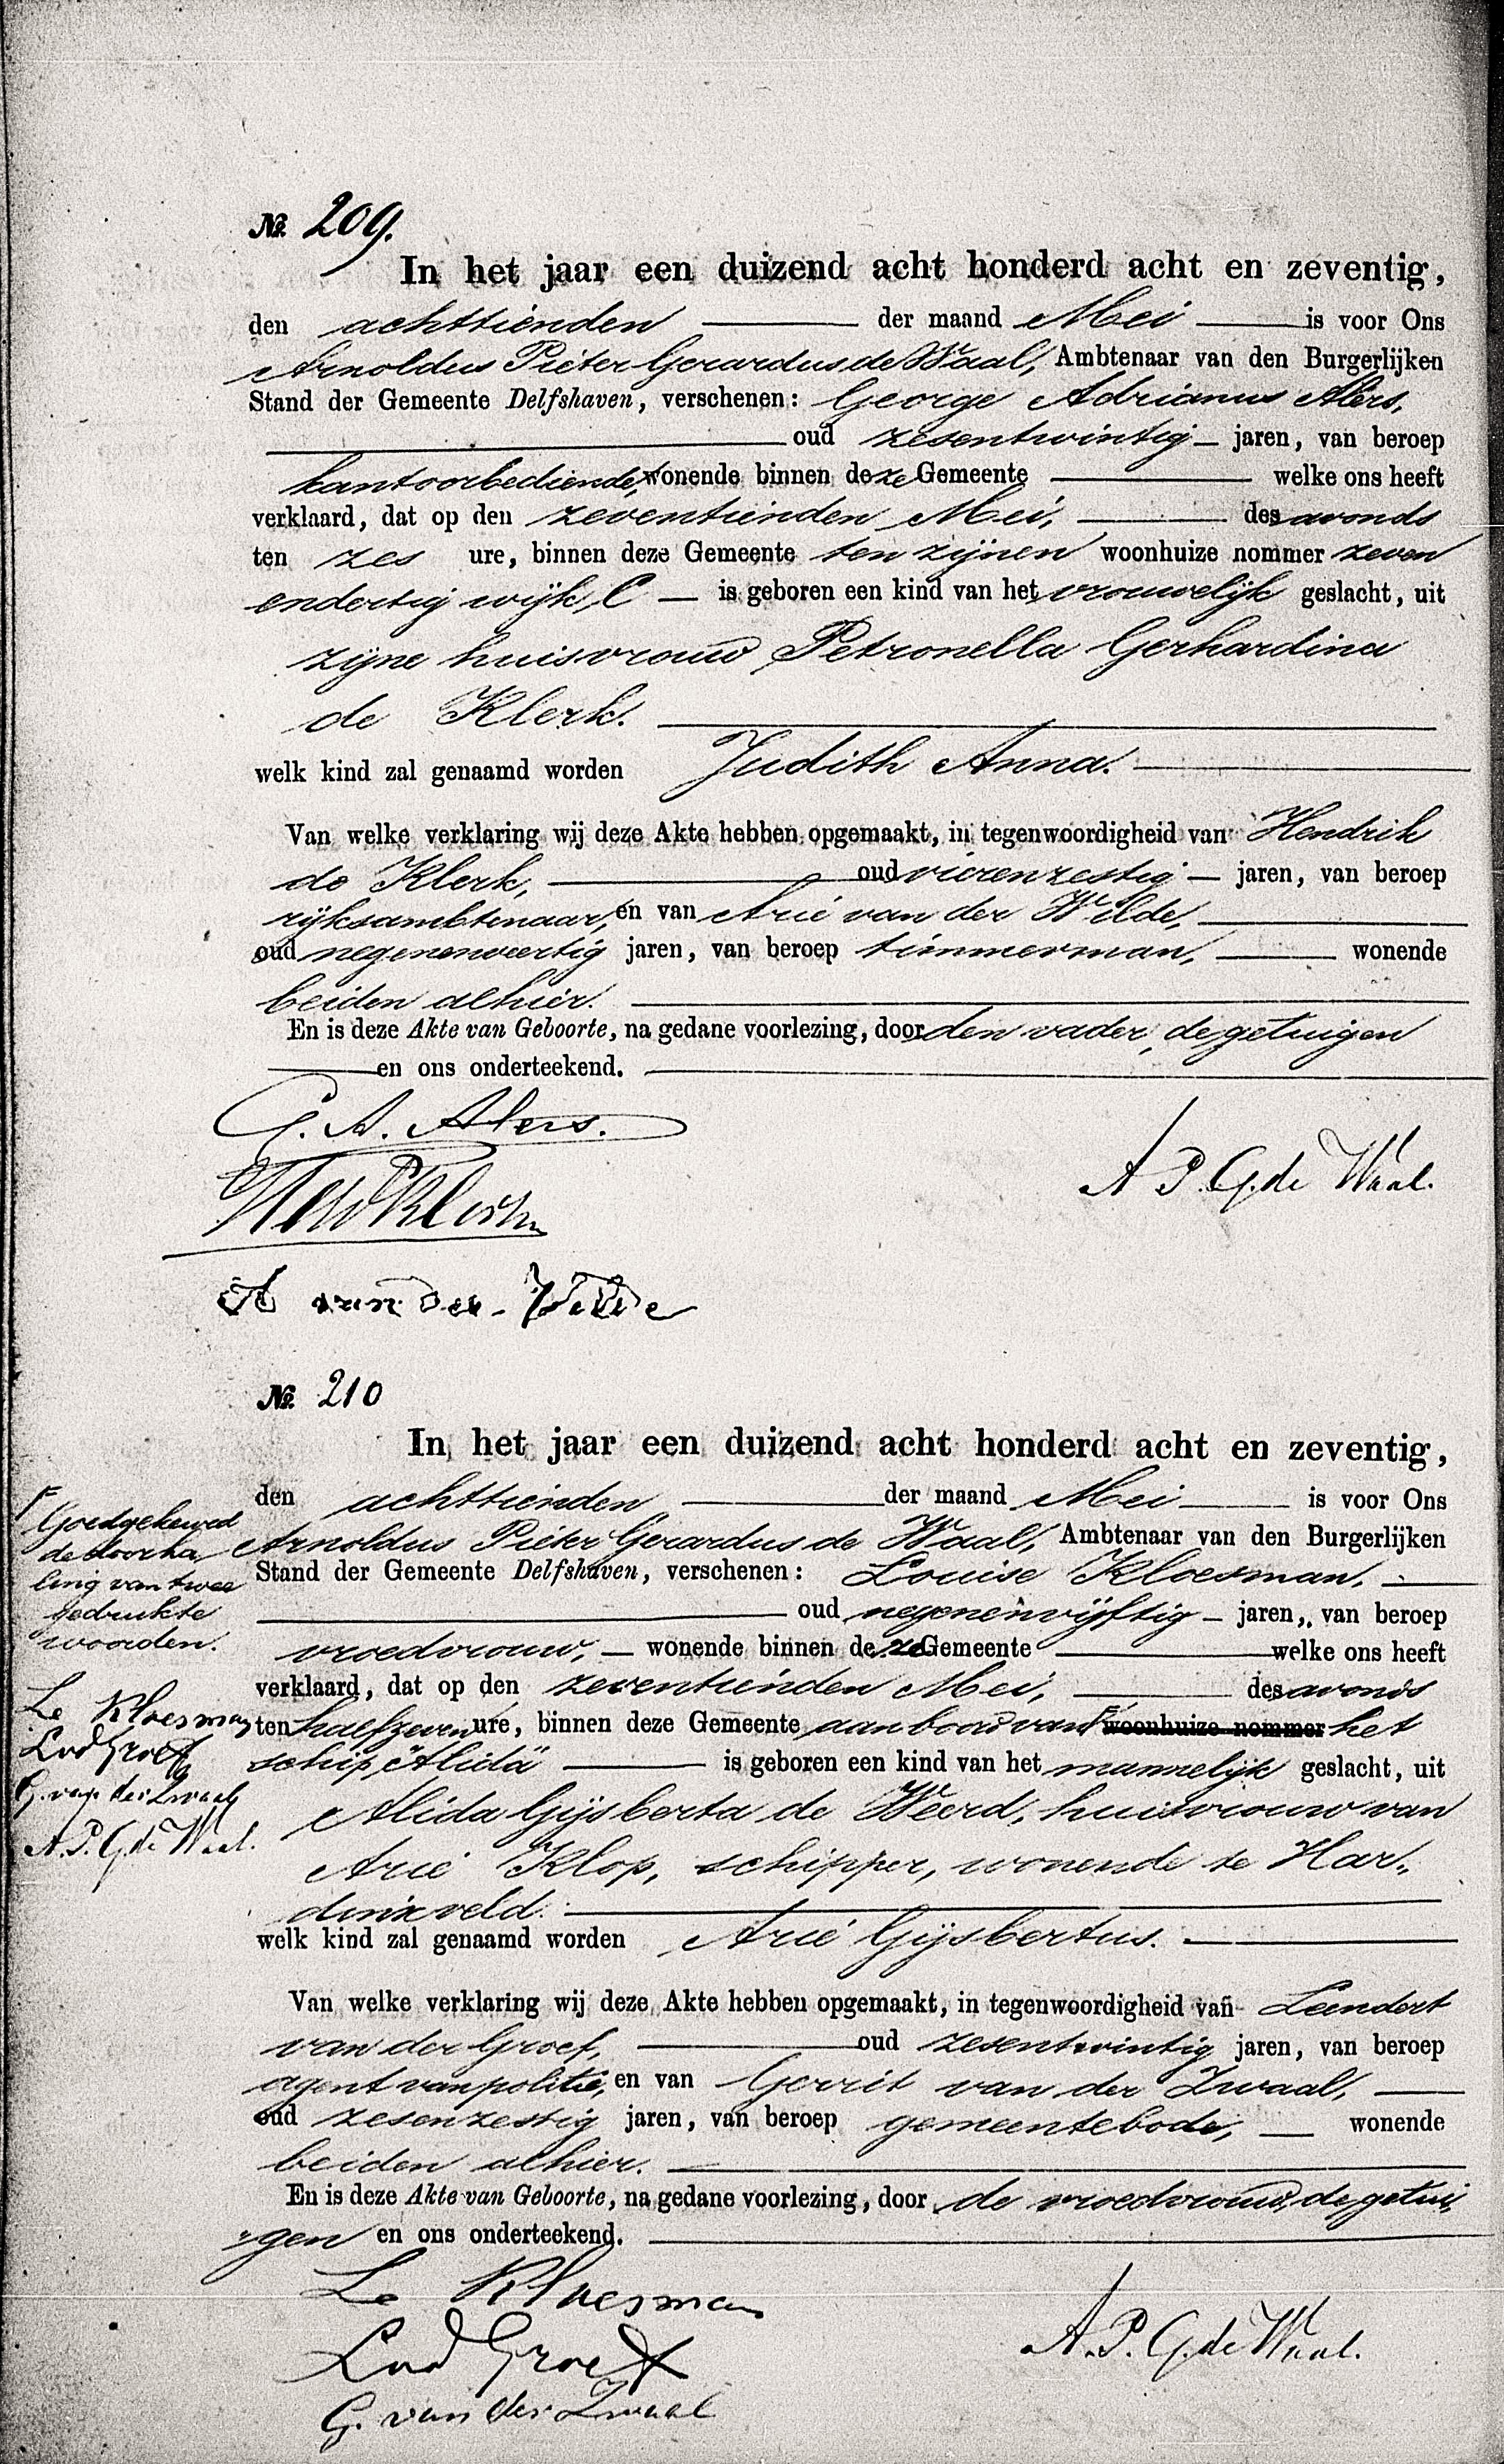 № 209.
In het jaar een duizend acht honderd acht en zeventig,
den achttienden der maand Mei is voor Ons
Arnoldus Pieter Gerardus de Waal, Ambtenaar van den Burgerlijken
Stand der Gemeente Delfshaven, verschenen: George Adrianus Alers,
oud zesentwintig jaren, van beroep
kantoorbediende, wonende binnen deze Gemeente welke ons heeft
verklaard, dat op den zeventienden Mei, des avonds
ten zes ure, binnen deze Gemeente ten zijnen woonhuize nommer zeven
endertig wijk C is geboren een kind van het vrouwelijk geslacht, uit
zijne huisvrouw Petronella Gerhardina
de Klerk.
welk kind zal genaamd worden Judith Anna.
Van welke verklaring wij deze Akte hebben opgemaakt, in tegenwoordigheid van Hendrik
de Klerk, oud vierenzestig jaren, van beroep
rijksambtenaar, en van Arie van der Wilde,
oud negenenveertig jaren, van beroep timmerman, wonende
beiden alhier.
En is deze Akte van Geboorte, na gedane voorlezing, door den vader, de getuigen
en ons onderteekend.
G. A. Alers.
A. P. G. de Waal.
H de Klerk
A van der Wilde
№ 210
In het jaar een duizend acht honderd acht en zeventig,
den achttienden der maand Mei is voor Ons
Arnoldus Pieter Gerardus de Waal, Ambtenaar van den Burgerlijken
Stand der Gemeente Delfshaven, verschenen: Louise Kloesman,
oud negenenvijftig jaren, van beroep
vroedvrouw, wonende binnen deze Gemeente welke ons heeft
verklaard, dat op den zeventienden Mei, des avonds
ten half zeven ure, binnen deze Gemeente aan boord van woonhuize nommer het
schip "Alida" is geboren een kind van het mannelijk geslacht, uit
Alida Gijsberta de Weerd, huisvrouw van
Arie Klop, schipper, wonende te Har-
dinxveld.
welk kind zal genaamd worden Arie Gijsbertus.
Van welke verklaring wij deze Akte hebben opgemaakt, in tegenwoordigheid van Leendert
van der Groef, oud zesentwintig jaren, van beroep
agent van politie, en van Gerrit van der Zwaal,
oud zesenzestig jaren, van beroep gemeentebode, wonende
beiden alhier.
En is deze Akte van Geboorte, na gedane voorlezing, door de vroedvrouw, de getui-
gen en ons onderteekend.
Le Kloesman
L v d Groef
G. van der Zwaal
A. P. G. de Waal.
Goedgekeurd
de doorha-
ling van twee
gedrukte
woorden.
Le Kloesman
L v d Groef
G. van der Zwaal
A. P. G. de Waal.